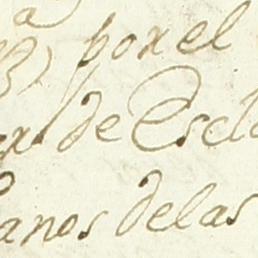 por el
de Escla
anos delas